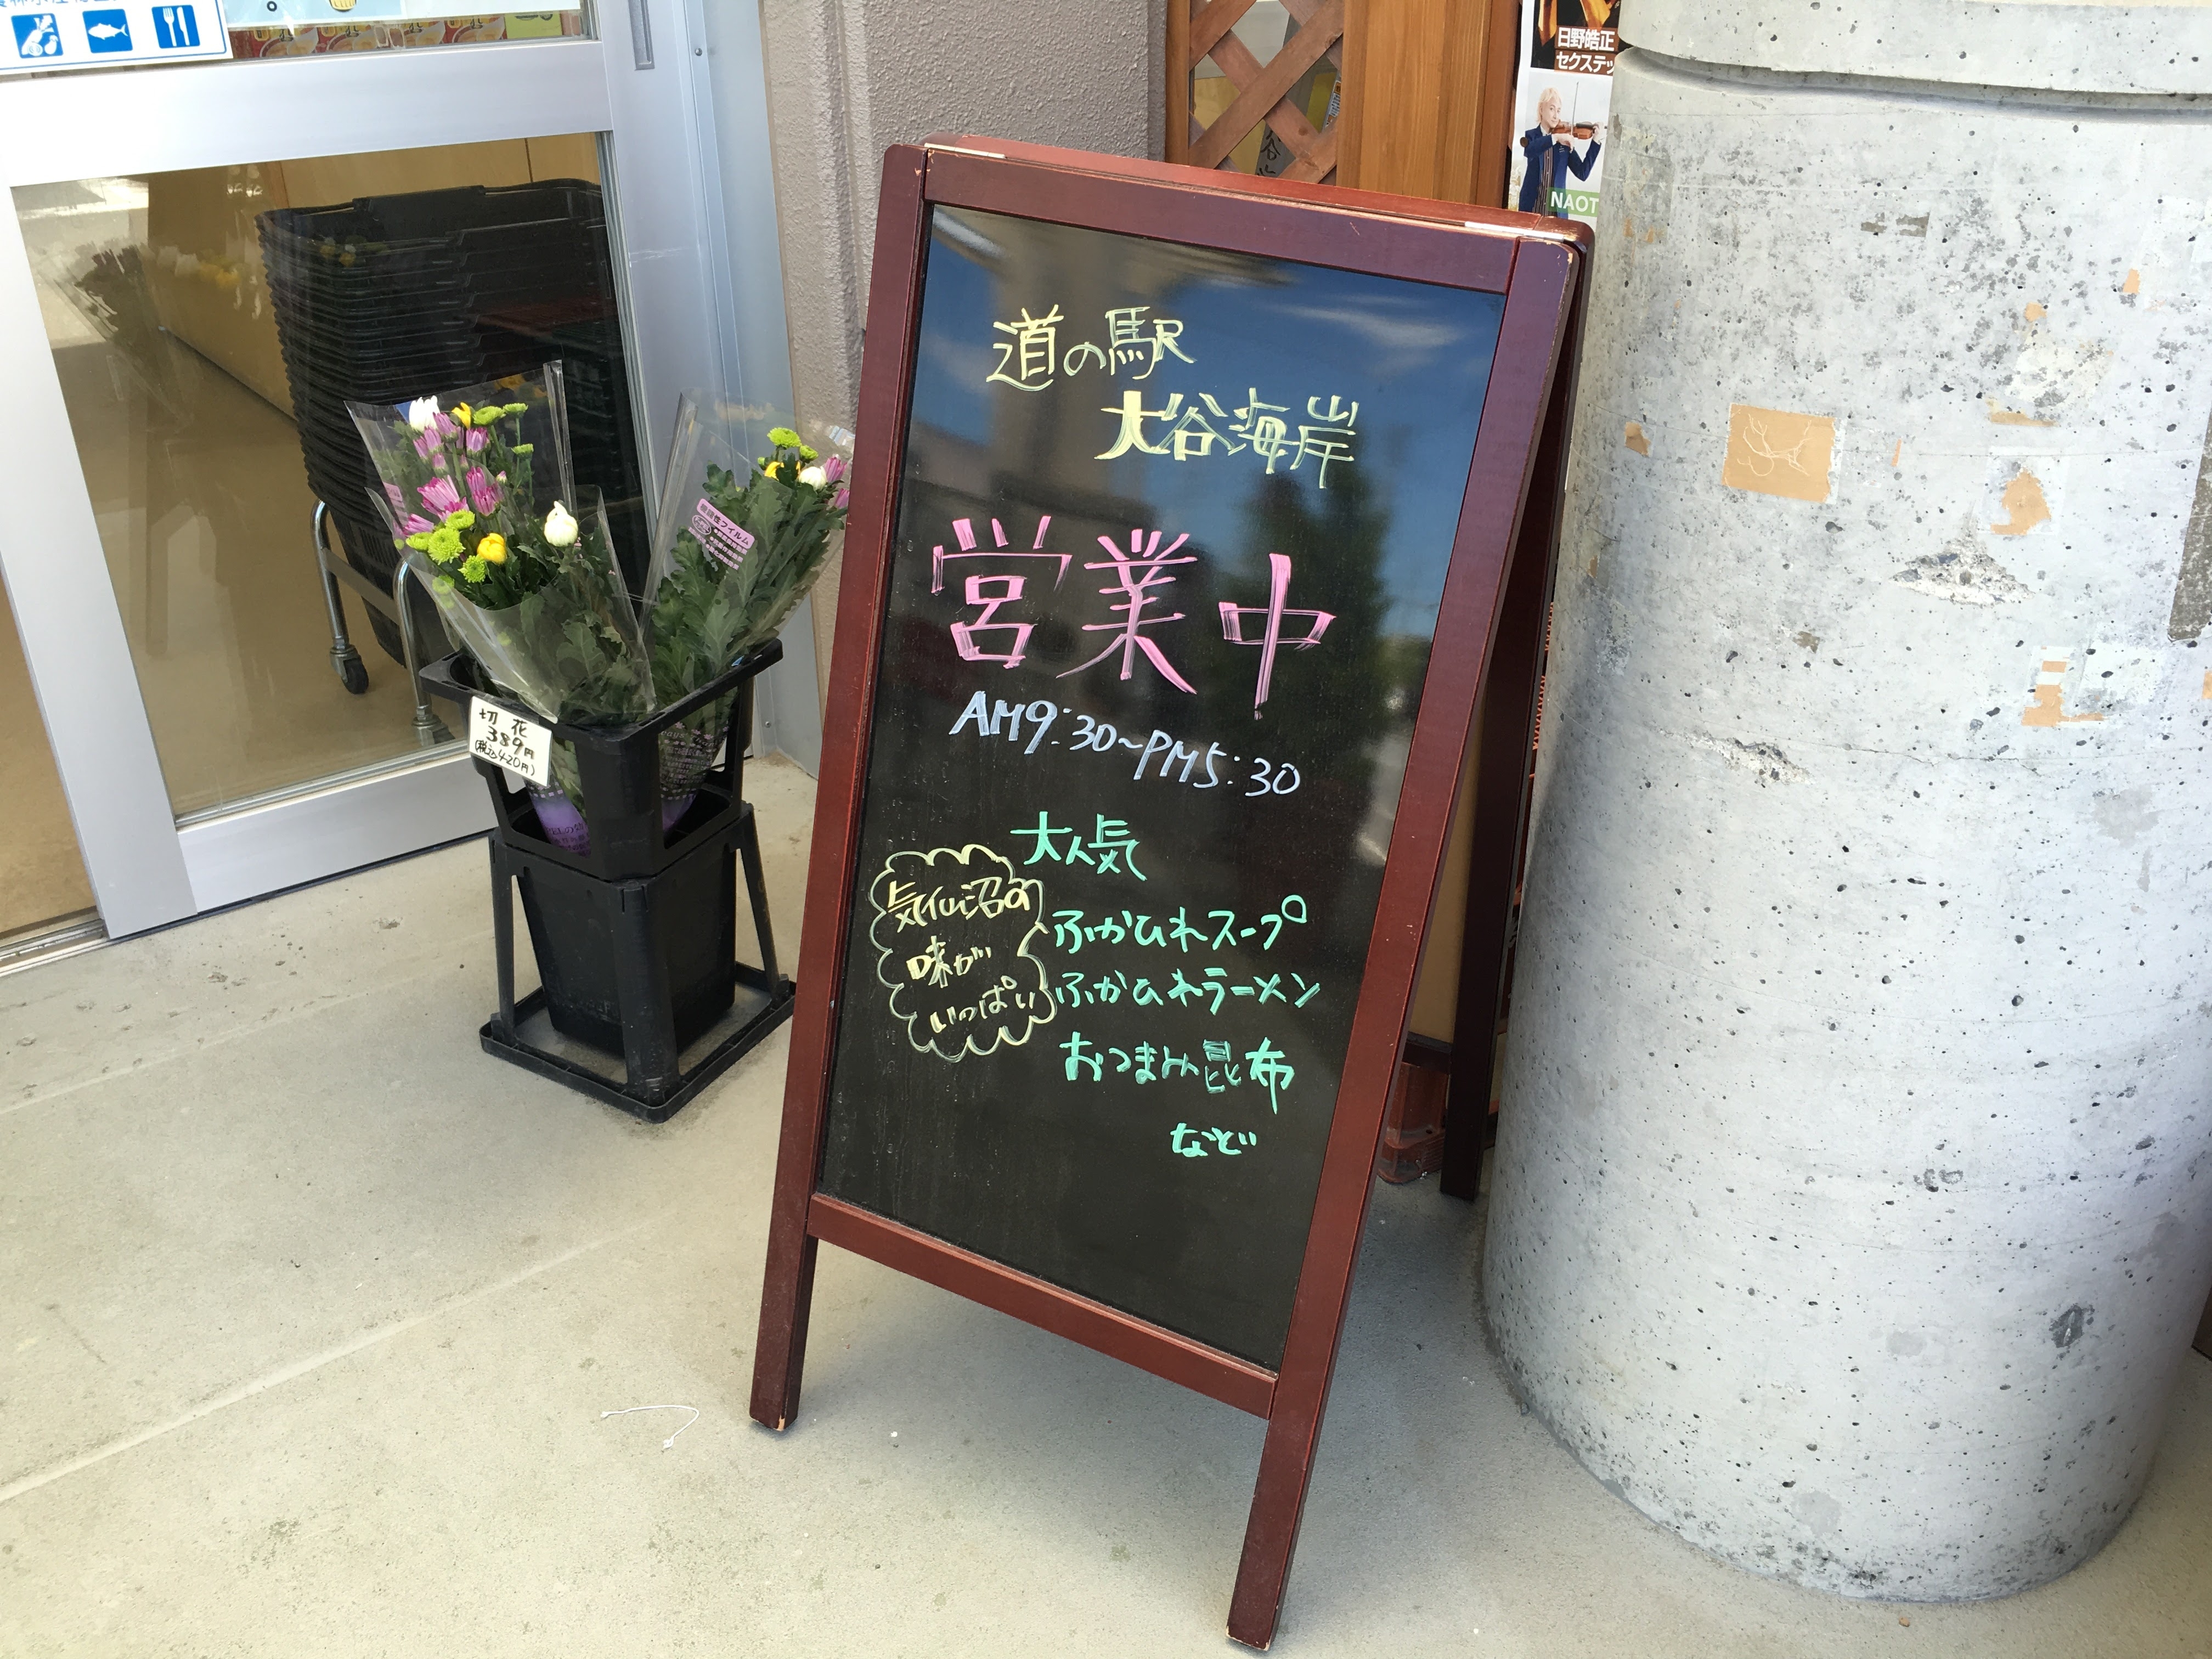 道の駅
大谷海岸
営業中
AM9:30~PM5:30
大人気
気仙沼の
味が
いっぱい
ふかひれスープ
ふかひれラーメン
おつまみ昆布
など
切花
389円
(税込420円)
日野皓正
セクステッ
NAOT